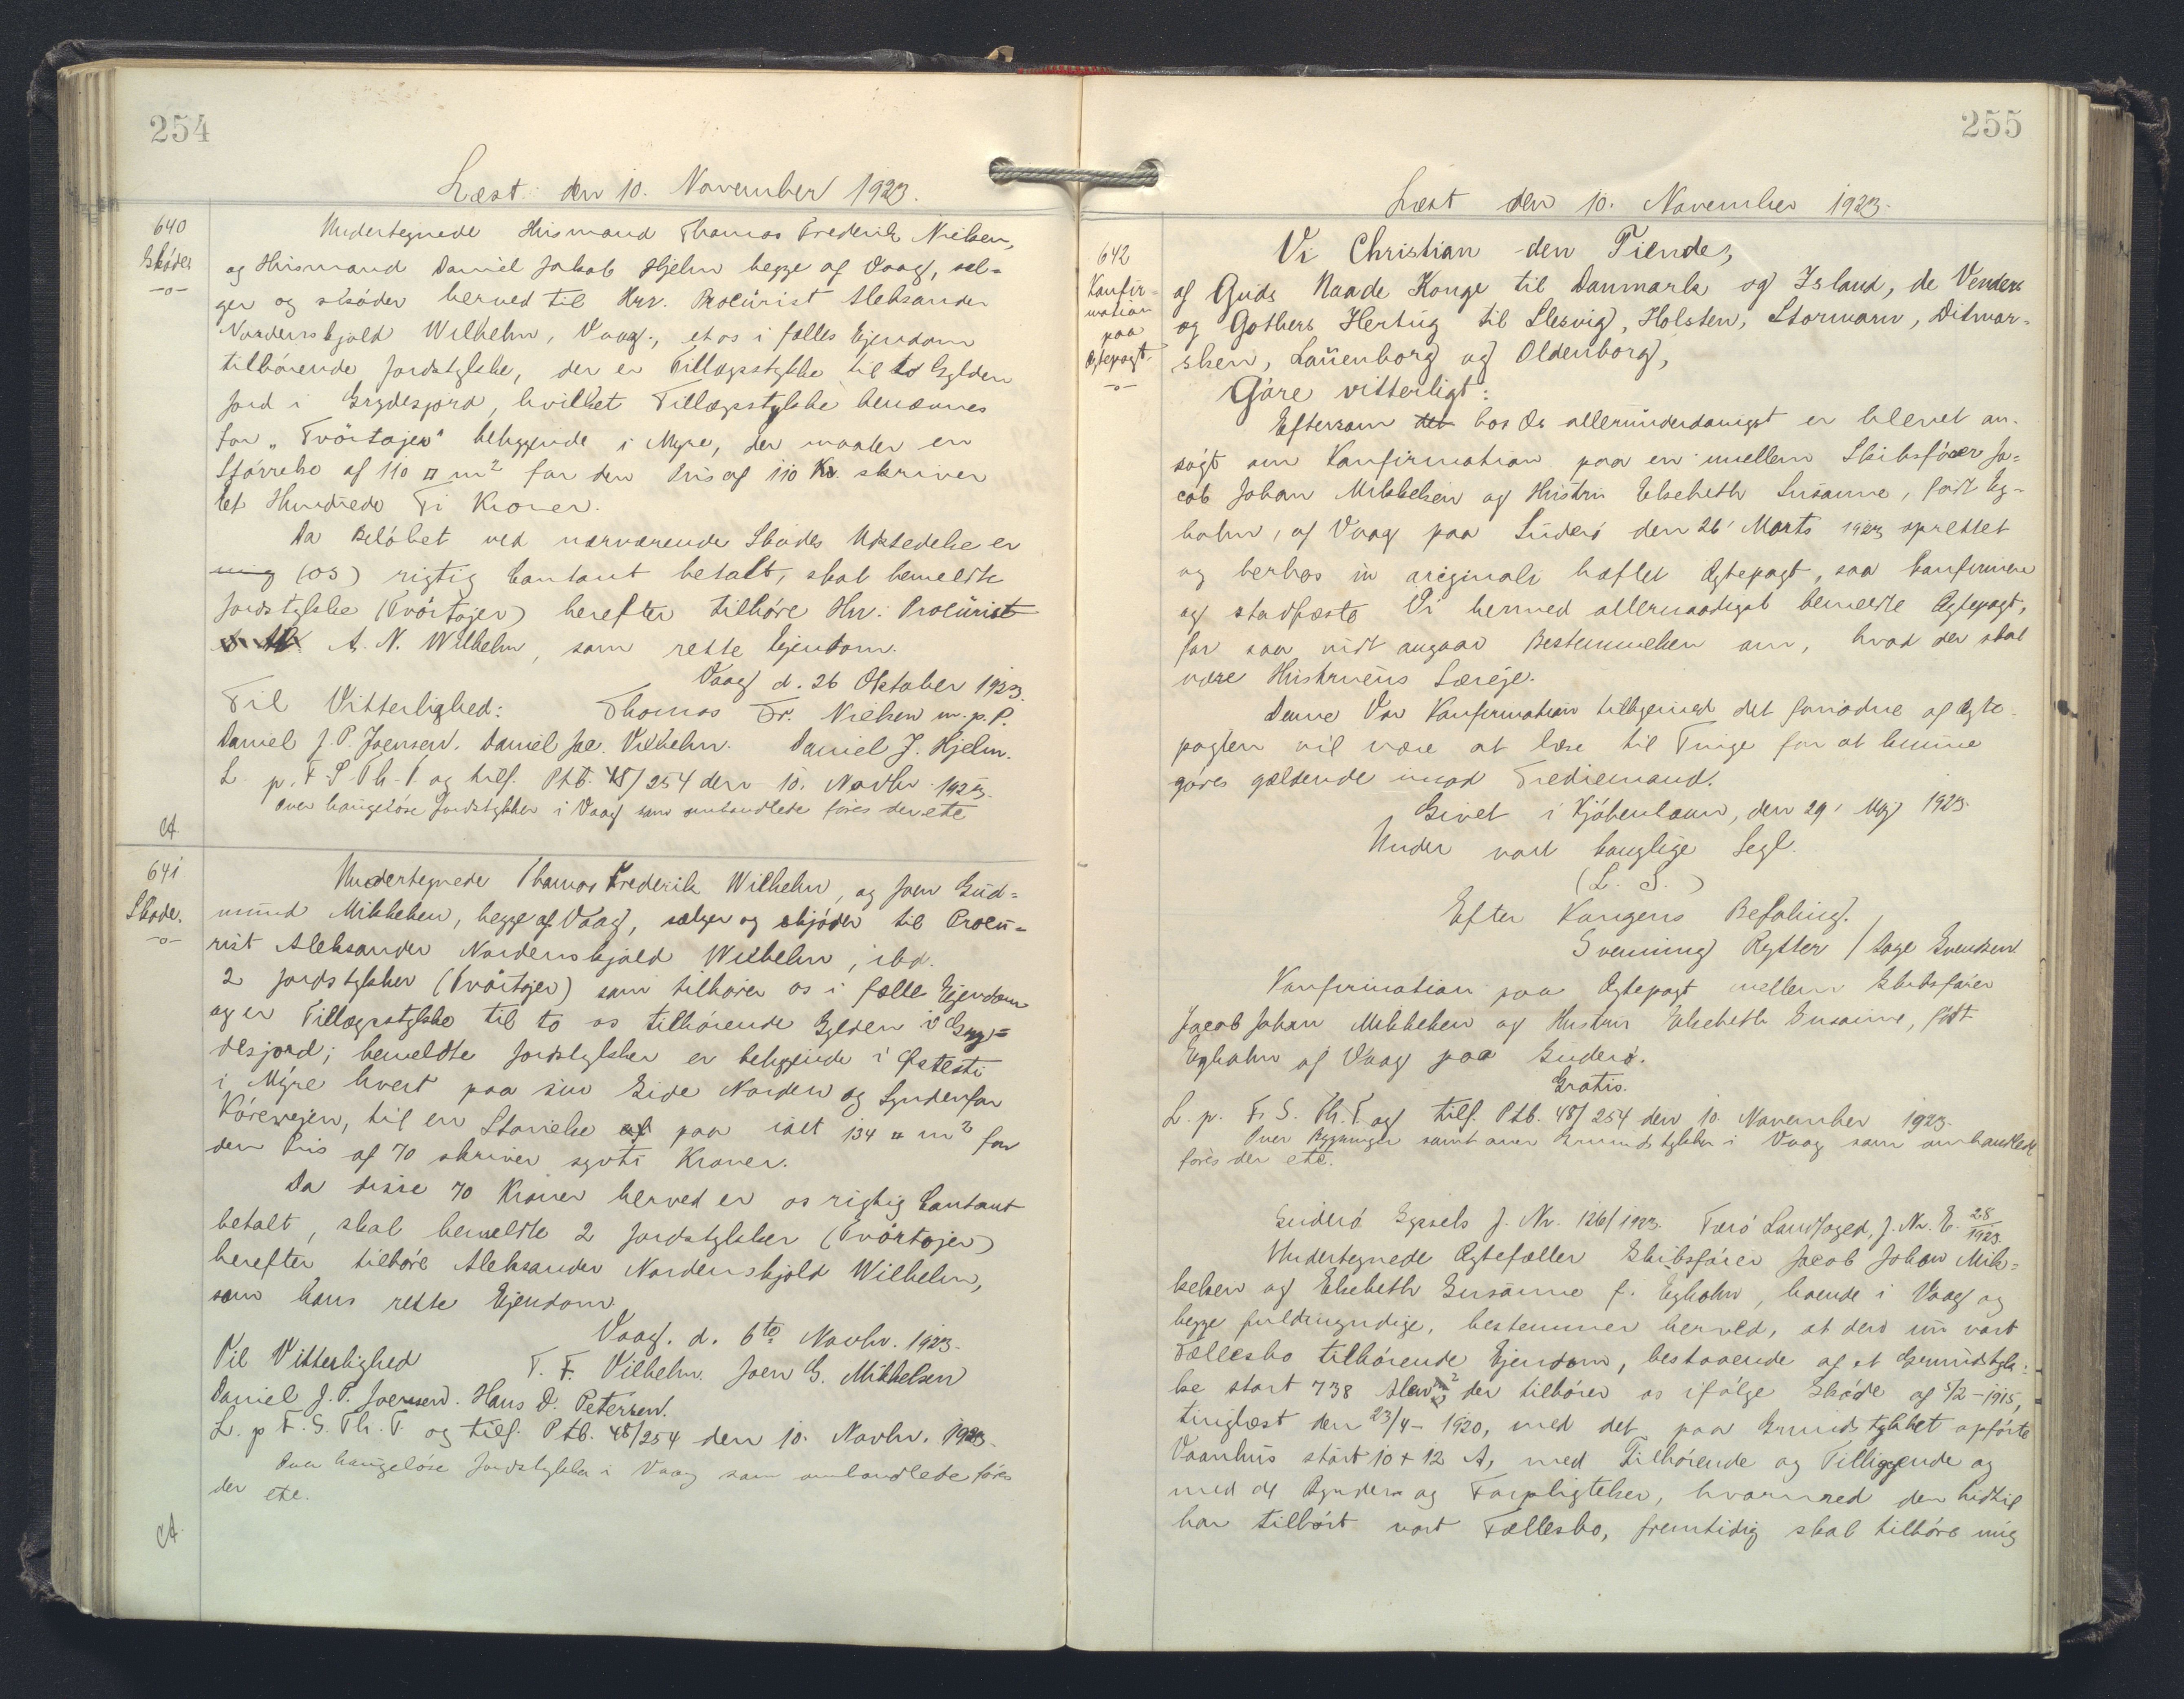 254
Læst den 10. November 1923.
640
Skøde
-o-
Undertegnede Husmand Thomas Frederik Nielsen,
og Husmand Daniel Jakob Hjelm begge af Vaag, sæl-
ger og skøder herved til Hrr. Procürist Aleksander
Nordenskjold Wilhelm, Vaag., et os i fælles Ejendom
tilhørende Jordstykke, der er Tillægsstykke til to Gylden
Jord i Grydesjord, hvilket Tillægsstykke benævnes
for „Tvörtøjer“ beliggende i Myre, der maaler en
Størrelse af 110 □ m² for den Pris af 110 Kr. skriver
Et Hundrede Ti Kroner.
Da Beløbet ved nærværende Skødes Udstedelse er
mig (os) rigtig Contant betalt, skal bemeldte
Jordstykke (Tvörtøjer) herefter tilhøre Hrr. Procürist
A. N. Wilhelm, som rette Ejendom.
Vaag d. 26 Oktober 1923.
Til Vitterlighed: Thomas Fr. Nielsen m. p. P.
Daniel J. P. Joensen. Daniel Jac. Vilhelm. Daniel J. Hjelm.
L. p. F. S. Th. T. og tilf. Ptb. 48/254 den 10. Novbr. 1923.
Over haugeløse Jordstykker i Vaag som omhandlede føres der etc
A
641
Skøde.
-o-
Undertegnede Thomas Frederik Wilhelm, og Joen Gud-
mund Mikkelsen, begge af Vaag, sælger og skjøder til Procü-
rist Aleksander Nordenskjold Wilhelm, ibd.
2 Jordstykker (Tvörtøjer) som tilhører os i fælles Ejendom
og er Tillægsstykke til to os tilhørende Gylden i Gry-
desjord; bemeldte Jordstykker er beliggende i Østesti
i Myre hvert paa sin Side Norden og Synden for
Kørevejen, til en Størrelse af paa ialt 134 □ m² for
den Pris af 70 skriver syvti Kroner.
Da disse 70 Kroner herved er os rigtig Contant
betalt, skal bemeldte 2 Jordstykker (Tvörtøjer)
herefter tilhøre Aleksander Nordenskjold Wilhelm,
som hans rette Ejendom.
Vaag. d. 6te Novbr. 1923.
Til Vitterlighed T. F. Vilhelm. Joen G. Mikkelsen
Daniel J. P. Joensen. Hans D. Petersen.
L. p. F. S. Th. T. og tilf. Ptb. 48/254 den 10. Novbr. 1923.
Over haugeløse Jordstykker i Vaag som omhandlede føres
der etc.
A.
255
Læst den 10. November 1923.
642
Konfir-
mation
paa
Ægtepagt.
-o-
Vi Christian den Tiende,
af Guds Naade Konge til Danmark og Island, de Venders
og Gothers Hertug til Slesvig, Holsten, Stormarn, Ditmar-
sken, Lauenborg og Oldenborg,
Gøre vitterligt:
Eftersom det hos Os allerunderdanigst er blevet an-
søgt om Konfirmation paa en mellem Skibsfører Ja-
cob Johan Mikkelsen og Hustru Elsebeth Susanne, født Eg-
holm, af Vaag paa Suderø den 26' Marts 1923 oprettet
og herhos in originali hæftet Ægtepagt, saa konfirmere
og stadfæste Vi hermed allernaadigst bemeldte Ægtepagt,
for saa vidt angaar Bestemmelsen om, hvad der skal
være Hustruens Særeje.
Denne Vor Konfirmation tilligemed det fornødne af Ægte-
pagten vil være at læse til Tinge for at kunne
gøres gældende imod Trediemand.
Givet i Kjøbenhavn, den 29' Maj 1923.
Under vort kongelige Segl.
(L. S.)
Efter Kongens Befaling.
Svenning Rytter / Aage Svendsen
Konfirmation paa Ægtepagt mellem Skibsfører
Jacob Johan Mikkelsen og Hustru Elsebeth Susanne, født
Egholm af Vaag paa Suderø.
Gratis.
L. p. F. S. Th. T. og tilf. Ptb. 48/254 den 10. November 1923.
Over Bygninger samt over Grundstykker i Vaag som omhandlede
føres der etc.
Suderø Syssels J. Nr. 126/1923. Færø Landfoged, J. Nr. E. 28/1923.
Undertegnede Ægtefæller Skibsfører Jacob Johan Mik-
kelsen og Elsebeth Susanne f. Egholm, boende i Vaag og
begge fuldmyndige, bestemmer herved, at den nu vort
Fællesbo tilhørende Ejendom, bestaaende af et Grundstyk-
ke stort 738 Alen² der tilhører os ifølge Skøde af 5/2-1915,
tinglæst den 23/4-1920, med det paa Grundstykket opførte
Vaanhus stort 10 + 12 A, med Tilhørende og Tilliggende og
med de Byrder og Forpligtelser, hvormed den hidtil
har tilhørt vort Fællesbo, fremtidig skal tilhøre mig